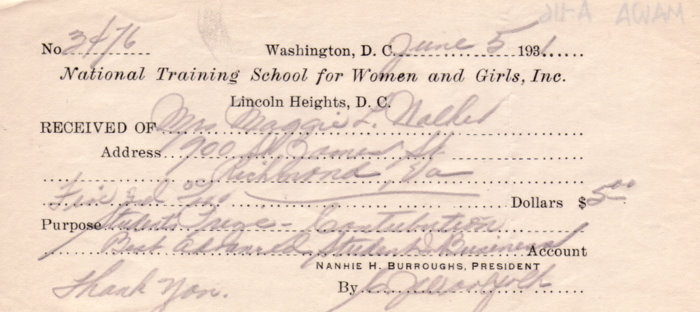 No. 3476 Washington, D. C. June 5 1931
National Training School for Women and Girls, Inc.
Lincoln Heights, D. C.
RECEIVED OF Mrs Maggie L. Walker
Address 900 St. James St
Richmond, Va
Five and 00/100 Dollars $5.00
Purpose Student Prize - Contribution
Best Advanced Student Business Account
NANHIE H. BURROUGHS, PRESIDENT
Thank You. By